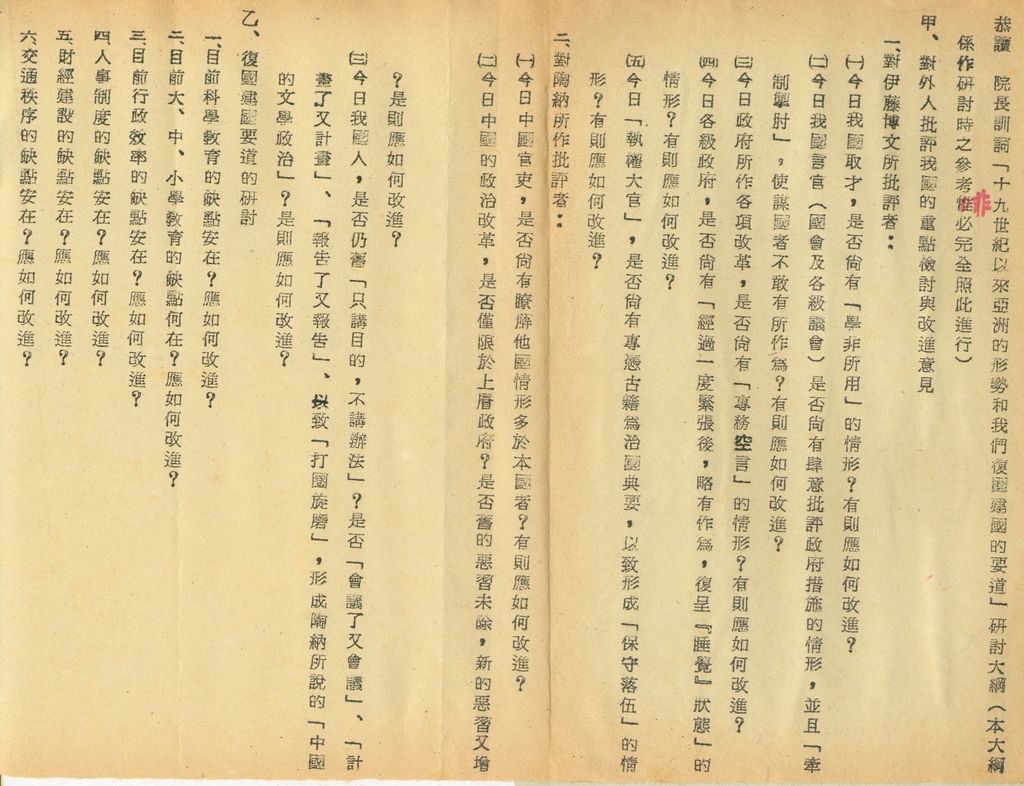 恭讀　院長訓詞「十九世紀以來亞洲的形勢和我們復國建國的要道」研討大綱（本大綱
係作研討時之參考非必完全照此進行）
甲、對外人批評我國的重點檢討與改進意見
一、對伊藤博文所批評者：
㈠今日我國取才，是否尚有「學非所用」的情形？有則應如何改進？
㈡今日我國言官（國會及各級議會）是否尚有肆意批評政府措施的情形，並且「牽
制掣肘」，使謀國者不敢有所作為？有則應如何改進？
㈢今日政府所作各項改革，是否尚有「專務空言」的情形？有則應如何改進？
㈣今日各級政府，是否尚有「經過一度緊張後，略有作為，復呈『睡覺』狀態」的
情形？有則應如何改進？
㈤今日「執權大官」，是否尚有專憑古籍為治國典要，以致形成「保守落伍」的情
形？有則應如何改進？
二、對陶納所作批評者：
㈠今日中國官吏，是否尚有瞭解他國情形多於本國者？有則應如何改進？
㈡今日中國的政治改革，是否僅限於上層政府？是否舊的惡習未除，新的惡習又增
？是則應如何改進？
㈢今日我國人，是否仍舊「只講目的，不講辦法」？是否「會議了又會議」、「計
畫了又計畫」、「報告了又報告」、以致「打圈旋磨」，形成陶納所說的「中國
的文學政治」？是則應如何改進？
乙、復國建國要道的研討
一、目前科學教育的缺點安在？應如何改進？
二、目前大、中、小學教育的缺點何在？應如何改進？
三、目前行政效率的缺點安在？應如何改進？
四、人事制度的缺點安在？應如何改進？
五、財經建設的缺點安在？應如何改進？
六、交通秩序的缺點安在？應如何改進？